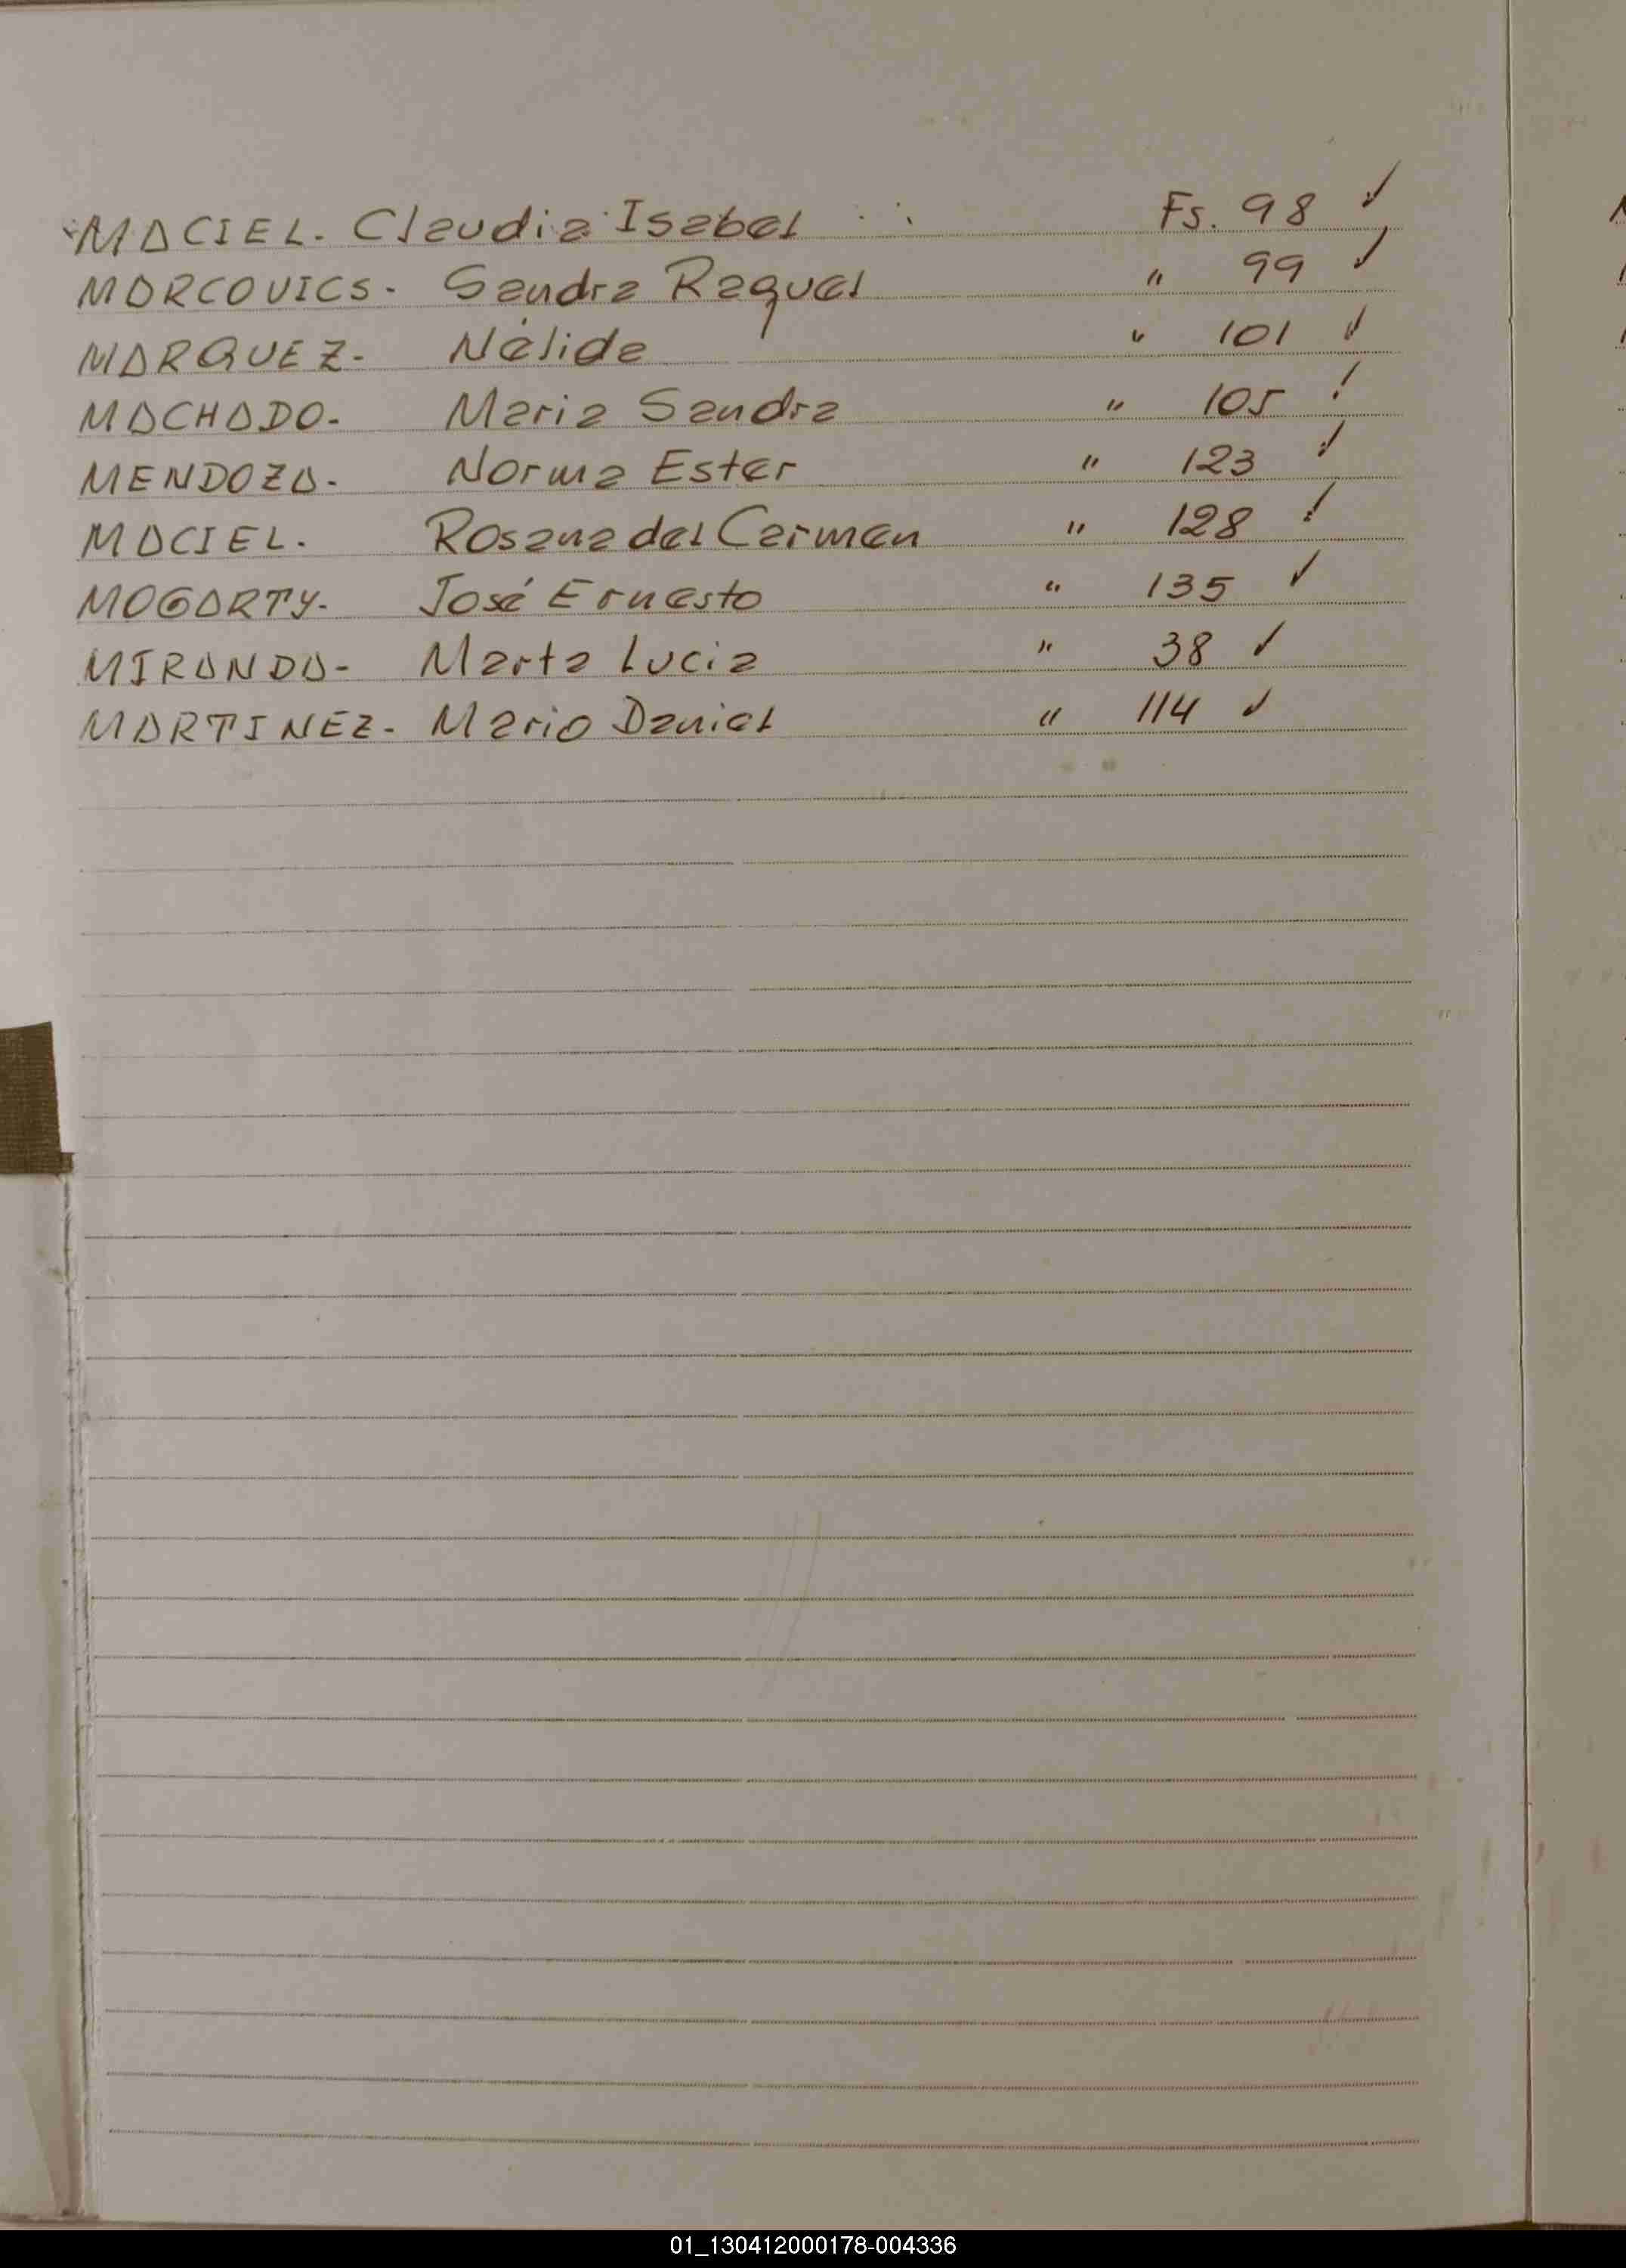 MACIEL. Claudia Isabel Fs. 98 ✓
MARCOVICS - Sandra Raquel " 99 ✓
MARQUEZ - Nélida " 101 ✓
MACHADO - Maria Sandra " 105 ✓
MENDOZA - Norma Ester " 123 ✓
MACIEL. Rosana del Carmen " 128 ✓
MOGARTY - José Ernesto " 135 ✓
MIRANDA - Marta Lucia " 38 ✓
MARTINEZ - Mario Daniel " 114 ✓
01_130412000178-004336